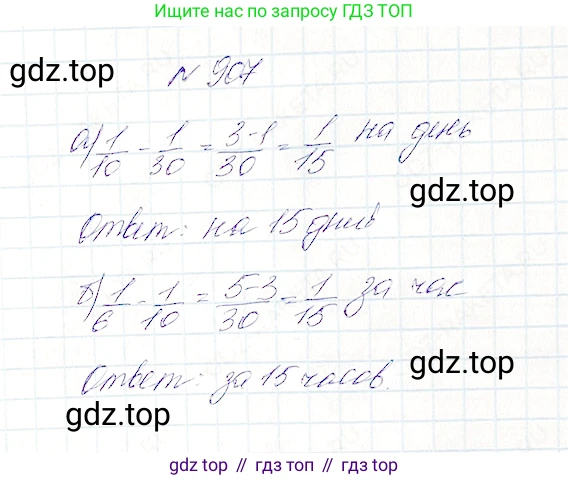 Ищите нас по запросу ГДЗ ТОП
gdz.top
№ 907
а) 1/10 - 1/30 = 3-1/30 = 1/15 на день
gdz.top
Ответ: на 15 дней
б) 1/6 - 1/10 = 5-3/30 = 1/15 за час
gdz.top
Ответ: за 15 часов.
gdz.top
gdz top // гдз топ // gdz.top